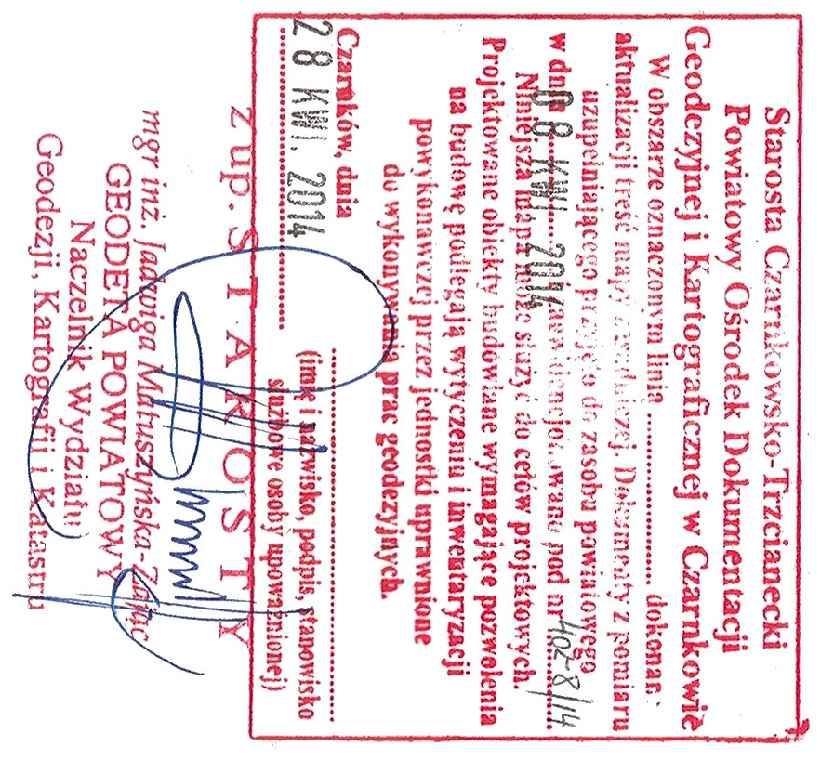 Starosta Czarnkowsko-Trzcianecki
Powiatowy Ośrodek Dokumentacji
Geodezyjnej i Kartograficznej w Czarnkowie
W obszarze oznaczonym linią .................... dokonano
aktualizacji treść mapy zasadniczej. Dokumenty z pomiaru
uzupełniającego przyjęto do zasobu powiatowego
w dniu 08 KWI. 2014 zaewidencjonowano pod nr 402-8/14
Niniejsza mapa może służyć do celów projektowych.
Projektowane obiekty budowlane wymagające pozwolenia
na budowę podlegają wytyczeniu i inwentaryzacji
powykonawczej przez jednostki uprawnione
do wykonywania prac geodezyjnych.
Czarnków, dnia
28 KWI. 2014
(imię i nazwisko, podpis, stanowisko
służbowe osoby upoważnionej)
z up. STAROSTY
mgr inż. Jadwiga Matuszyńska-
GEODETA POWIATOWY
Naczelnik Wydziału
Geodezji, Kartografii i Katastru